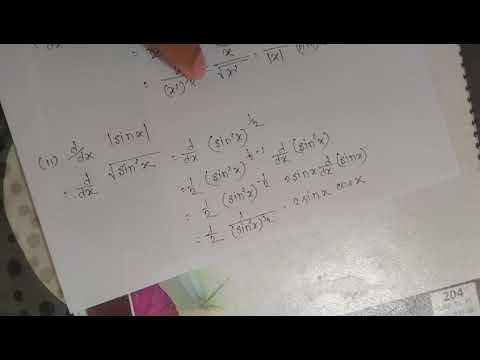 = x/(x²)^½ = x/√x² = x/|x|
(11) d/dx |sinx|
= d/dx √sin²x = d/dx (sin²x)^½
= ½ (sin²x)^(½-1) d/dx (sin²x)
= ½ (sin²x)^-½ 2 sinx d/dx (sinx)
= ½ 1/(sin²x)^½ · 2 sinx cosx
204